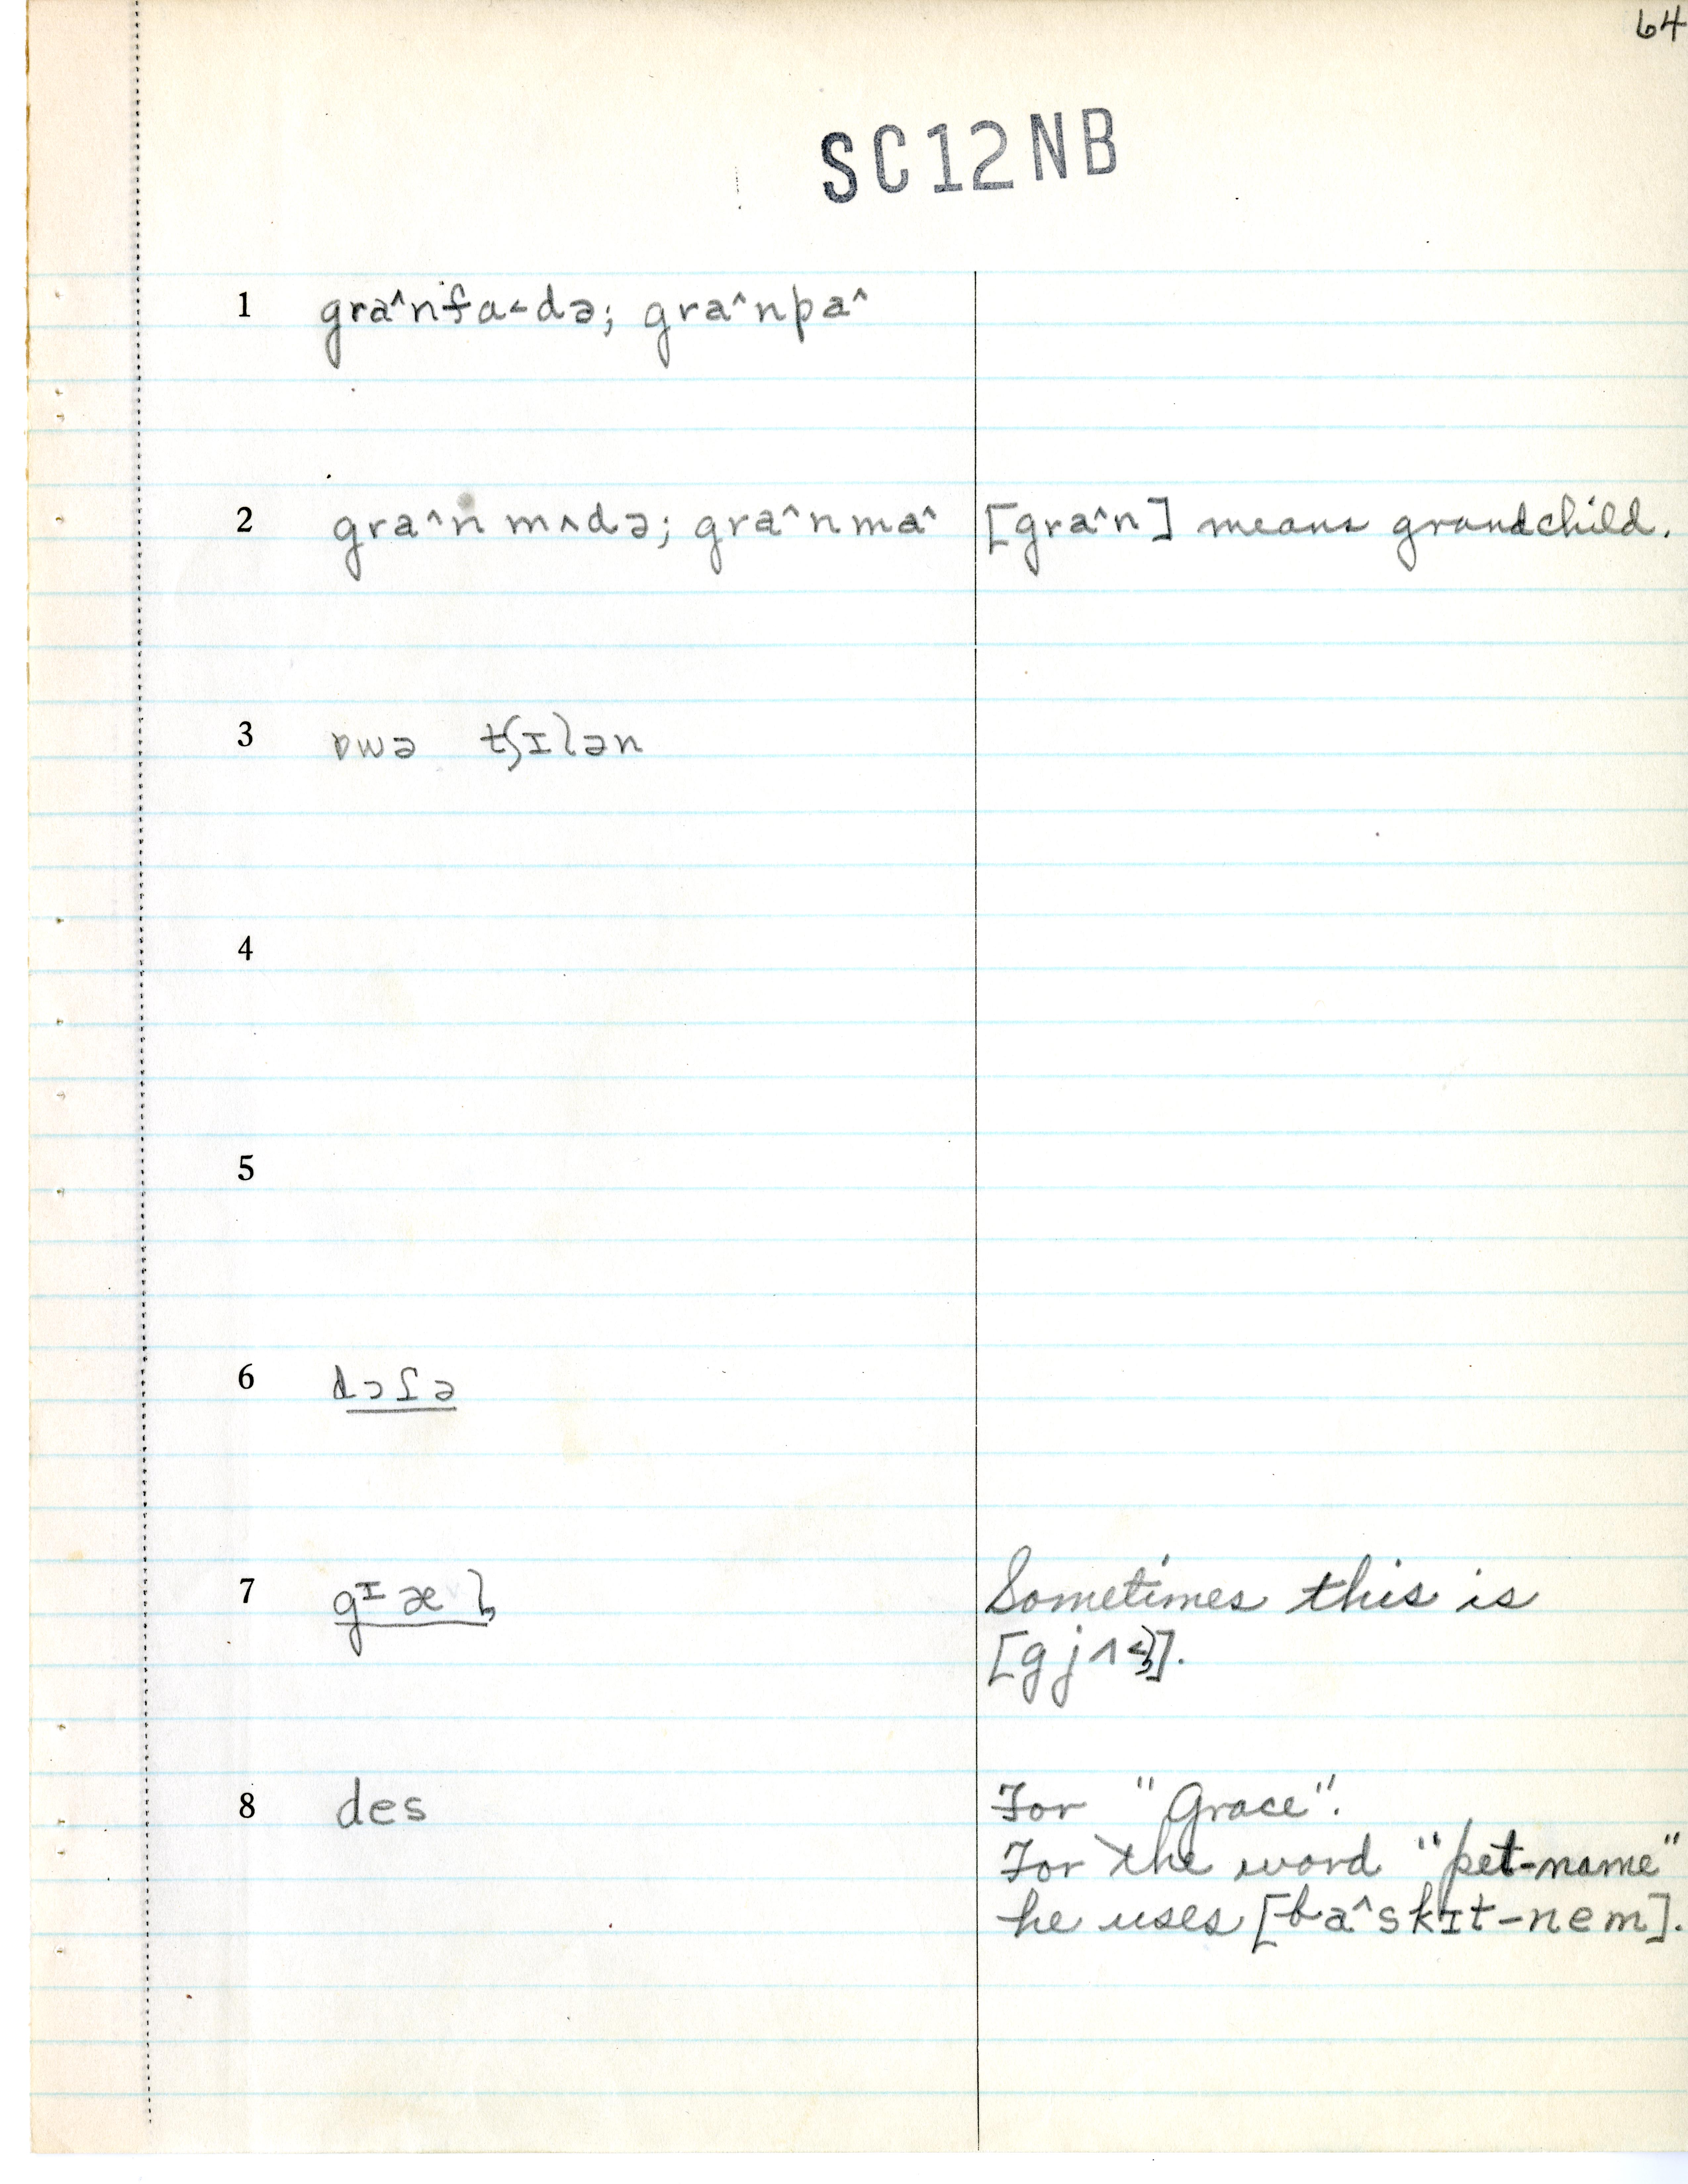 64
SC12NB
1 graˆnfa˂də; graˆnpaˆ
2 graˆn mʌdə; graˆnmaˆ [graˆn] means grandchild.
3 ɒwə tʃɪlən
4
5
6 dɔʃə
7 gɪæl
Sometimes this is
8 des For "Grace".
For the word "pet-name"
he uses [baˆskɪt-nem].